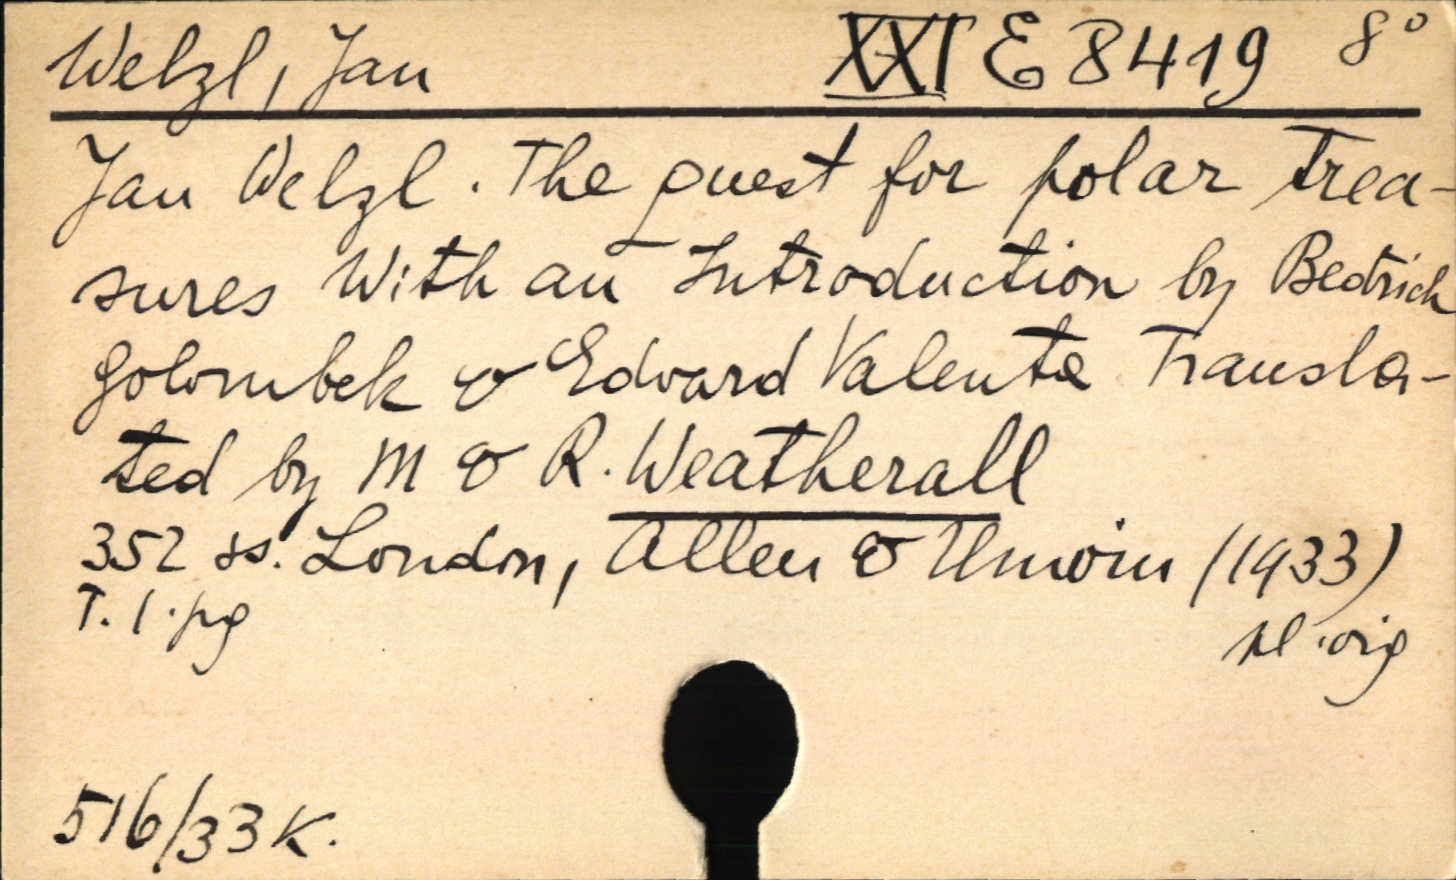 Welzl, Jan XXI E 8419 8°
Jan Welzl. The quest for polar trea-
sures With an Introduction by Bedrich
Golombek & Edvard Valenta Transla-
ted by M & R. Weatherall
352 ss. London, Allen & Unwin (1933)
T. 1. pg
pl. orig
516/33 K.